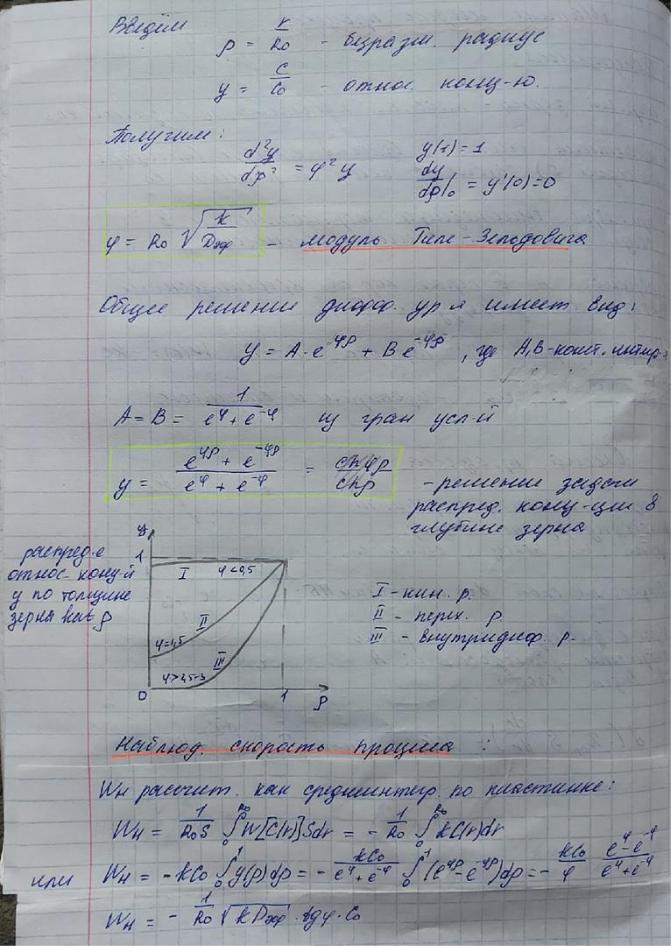 Введём ρ = r/R₀ - безразм. радиус
y = C/C₀ - относ. конц-ю.
Получим:
d²y/dρ² = φ² y y(1) = 1
dy/dρ|₀ = y'(0) = 0
φ = R₀ √(k/Dэф) - модуль Тиле-Зельдовича
Общее решение дифф. ур-я имеет вид:
y = A·e^-φρ + B e^-φρ, где A, B - конст. интегр-я
A = B = 1/(e^φ + e^-φ) из гран усл-й
y = (e^φρ + e^-φρ)/(e^φ + e^-φ) = chφρ/chρ
- решение задачи
распред. конц-ции в
глубине зерна
y
распред-е
относ. конц-й
y по толщине
зерна kat ρ
1
I φ<0,5
II
φ=1,5
III
φ>2,5-3
0 1 ρ
I - кин. р.
II - перех. р.
III - внутридиф. р.
Наблюд. скорость процесса:
Wн рассчит. как среднеинтегр. по пластинке:
Wн = 1/(R₀S) ∫₀^R₀ W[C(r)]Sdr = - 1/R₀ ∫₀^R₀ kC(r)dr
или Wн = -kC₀ ∫₀¹ y(ρ)dρ = - kC₀/(e^φ + e^-φ) ∫₀¹ (e^φρ - e^φρ)dρ = - kC₀/φ (e^φ - e^-φ)/(e^φ + e^-φ)
Wн = - 1/R₀ √(k Dэф) · tgφ · C₀